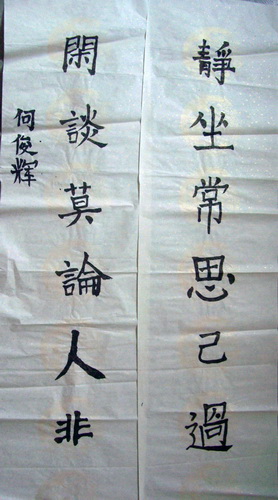 靜坐常思己過
閑談莫論人非
何俊輝